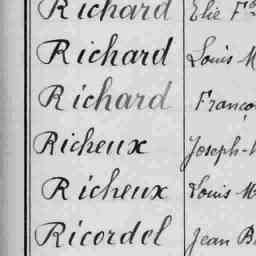 Richard Elie
Richard Louis
Richard
Richeux Joseph
Richeux Louis
Ricordel Jean